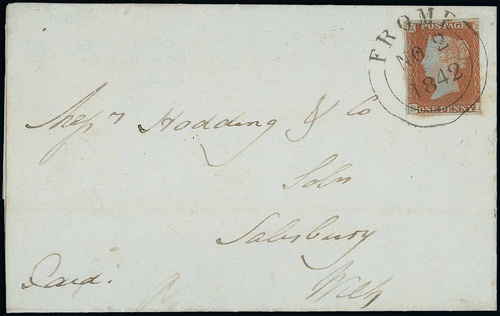 FROME
NO 2
1842
POSTAGE
ONE PENNY
Messrs Hodding & Co
Solrs
Salesbury
Wilts
Paid.